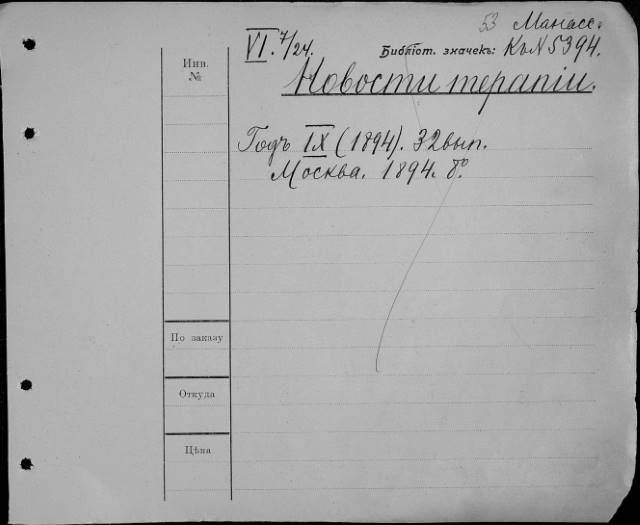 53 Манасс.
VI. 7/24. Библіот. значекъ: Къ N 5394.
Инв. №
Новости терапіи.
Годъ IX (1894). 32 вып.
Москва. 1894. 8º.
По заказу
Откуда
Цѣна